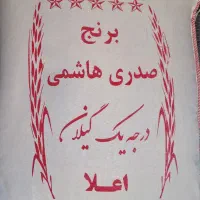 برنج
صدری هاشمی
درجه یک گیلان
اعلا